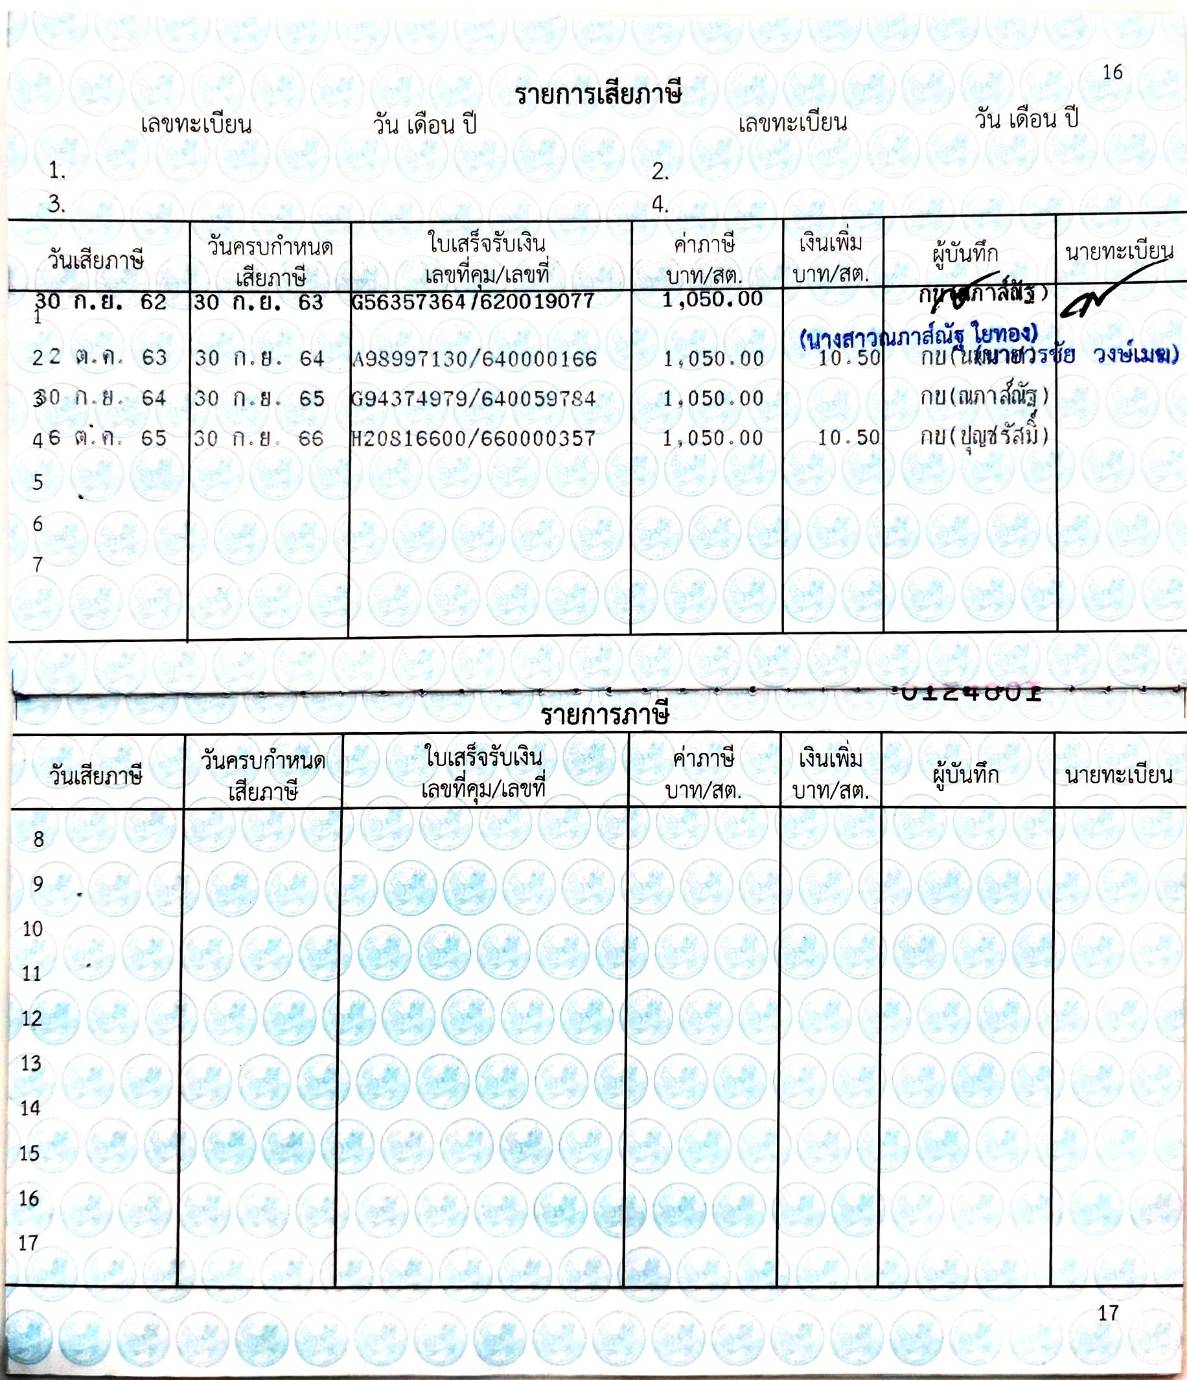 16
รายการเสียภาษี
เลขทะเบียน วัน เดือน ปี เลขทะเบียน วัน เดือน ปี
1. 2.
3. 4.
วันเสียภาษี วันครบกำหนดเสียภาษี ใบเสร็จรับเงิน เลขที่คุม/เลขที่ ค่าภาษี บาท/สต. เงินเพิ่ม บาท/สต. ผู้บันทึก นายทะเบียน
1 30 ก.ย. 62 30 ก.ย. 63 G56357364/620019077 1,050.00
(นางสาวณภาส์ณัฐ ใยทอง)
2 2 ต.ค. 63 30 ก.ย. 64 A98997130/640000166 1,050.00 10.50 (นายวรชัย วงษ์เมฆ)
3 30 ก.ย. 64 30 ก.ย. 65 G94374979/640059784 1,050.00 กบ(ณภาส์ณัฐ)
4 6 ต.ค. 65 30 ก.ย. 66 H20816600/660000357 1,050.00 10.50 กบ(ปุญชรัสมิ์)
5
6
7
รายการภาษี
วันเสียภาษี วันครบกำหนดเสียภาษี ใบเสร็จรับเงิน เลขที่คุม/เลขที่ ค่าภาษี บาท/สต. เงินเพิ่ม บาท/สต. ผู้บันทึก นายทะเบียน
8
9
10
11
12
13
14
15
16
17
17